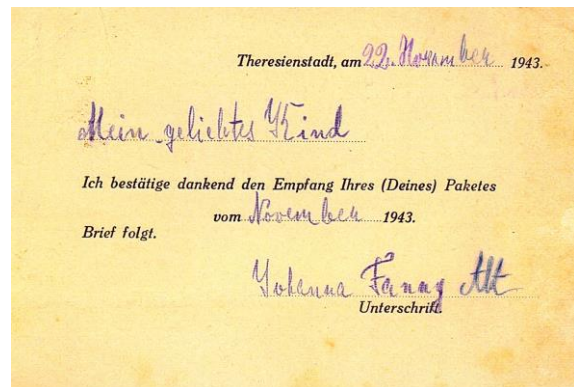 Theresienstadt, am 22. November 1943.
Mein geliebtes Kind
Ich bestätige dankend den Empfang Ihres (Deines) Paketes
vom November 1943.
Brief folgt.
Johanna Fanny Alt
Unterschrift.